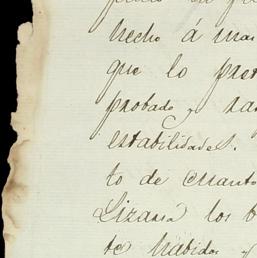 hecho á mas
que lo pret
probado y ha
estabilidades.
to de cuanto
Lizana los b
te habidos y